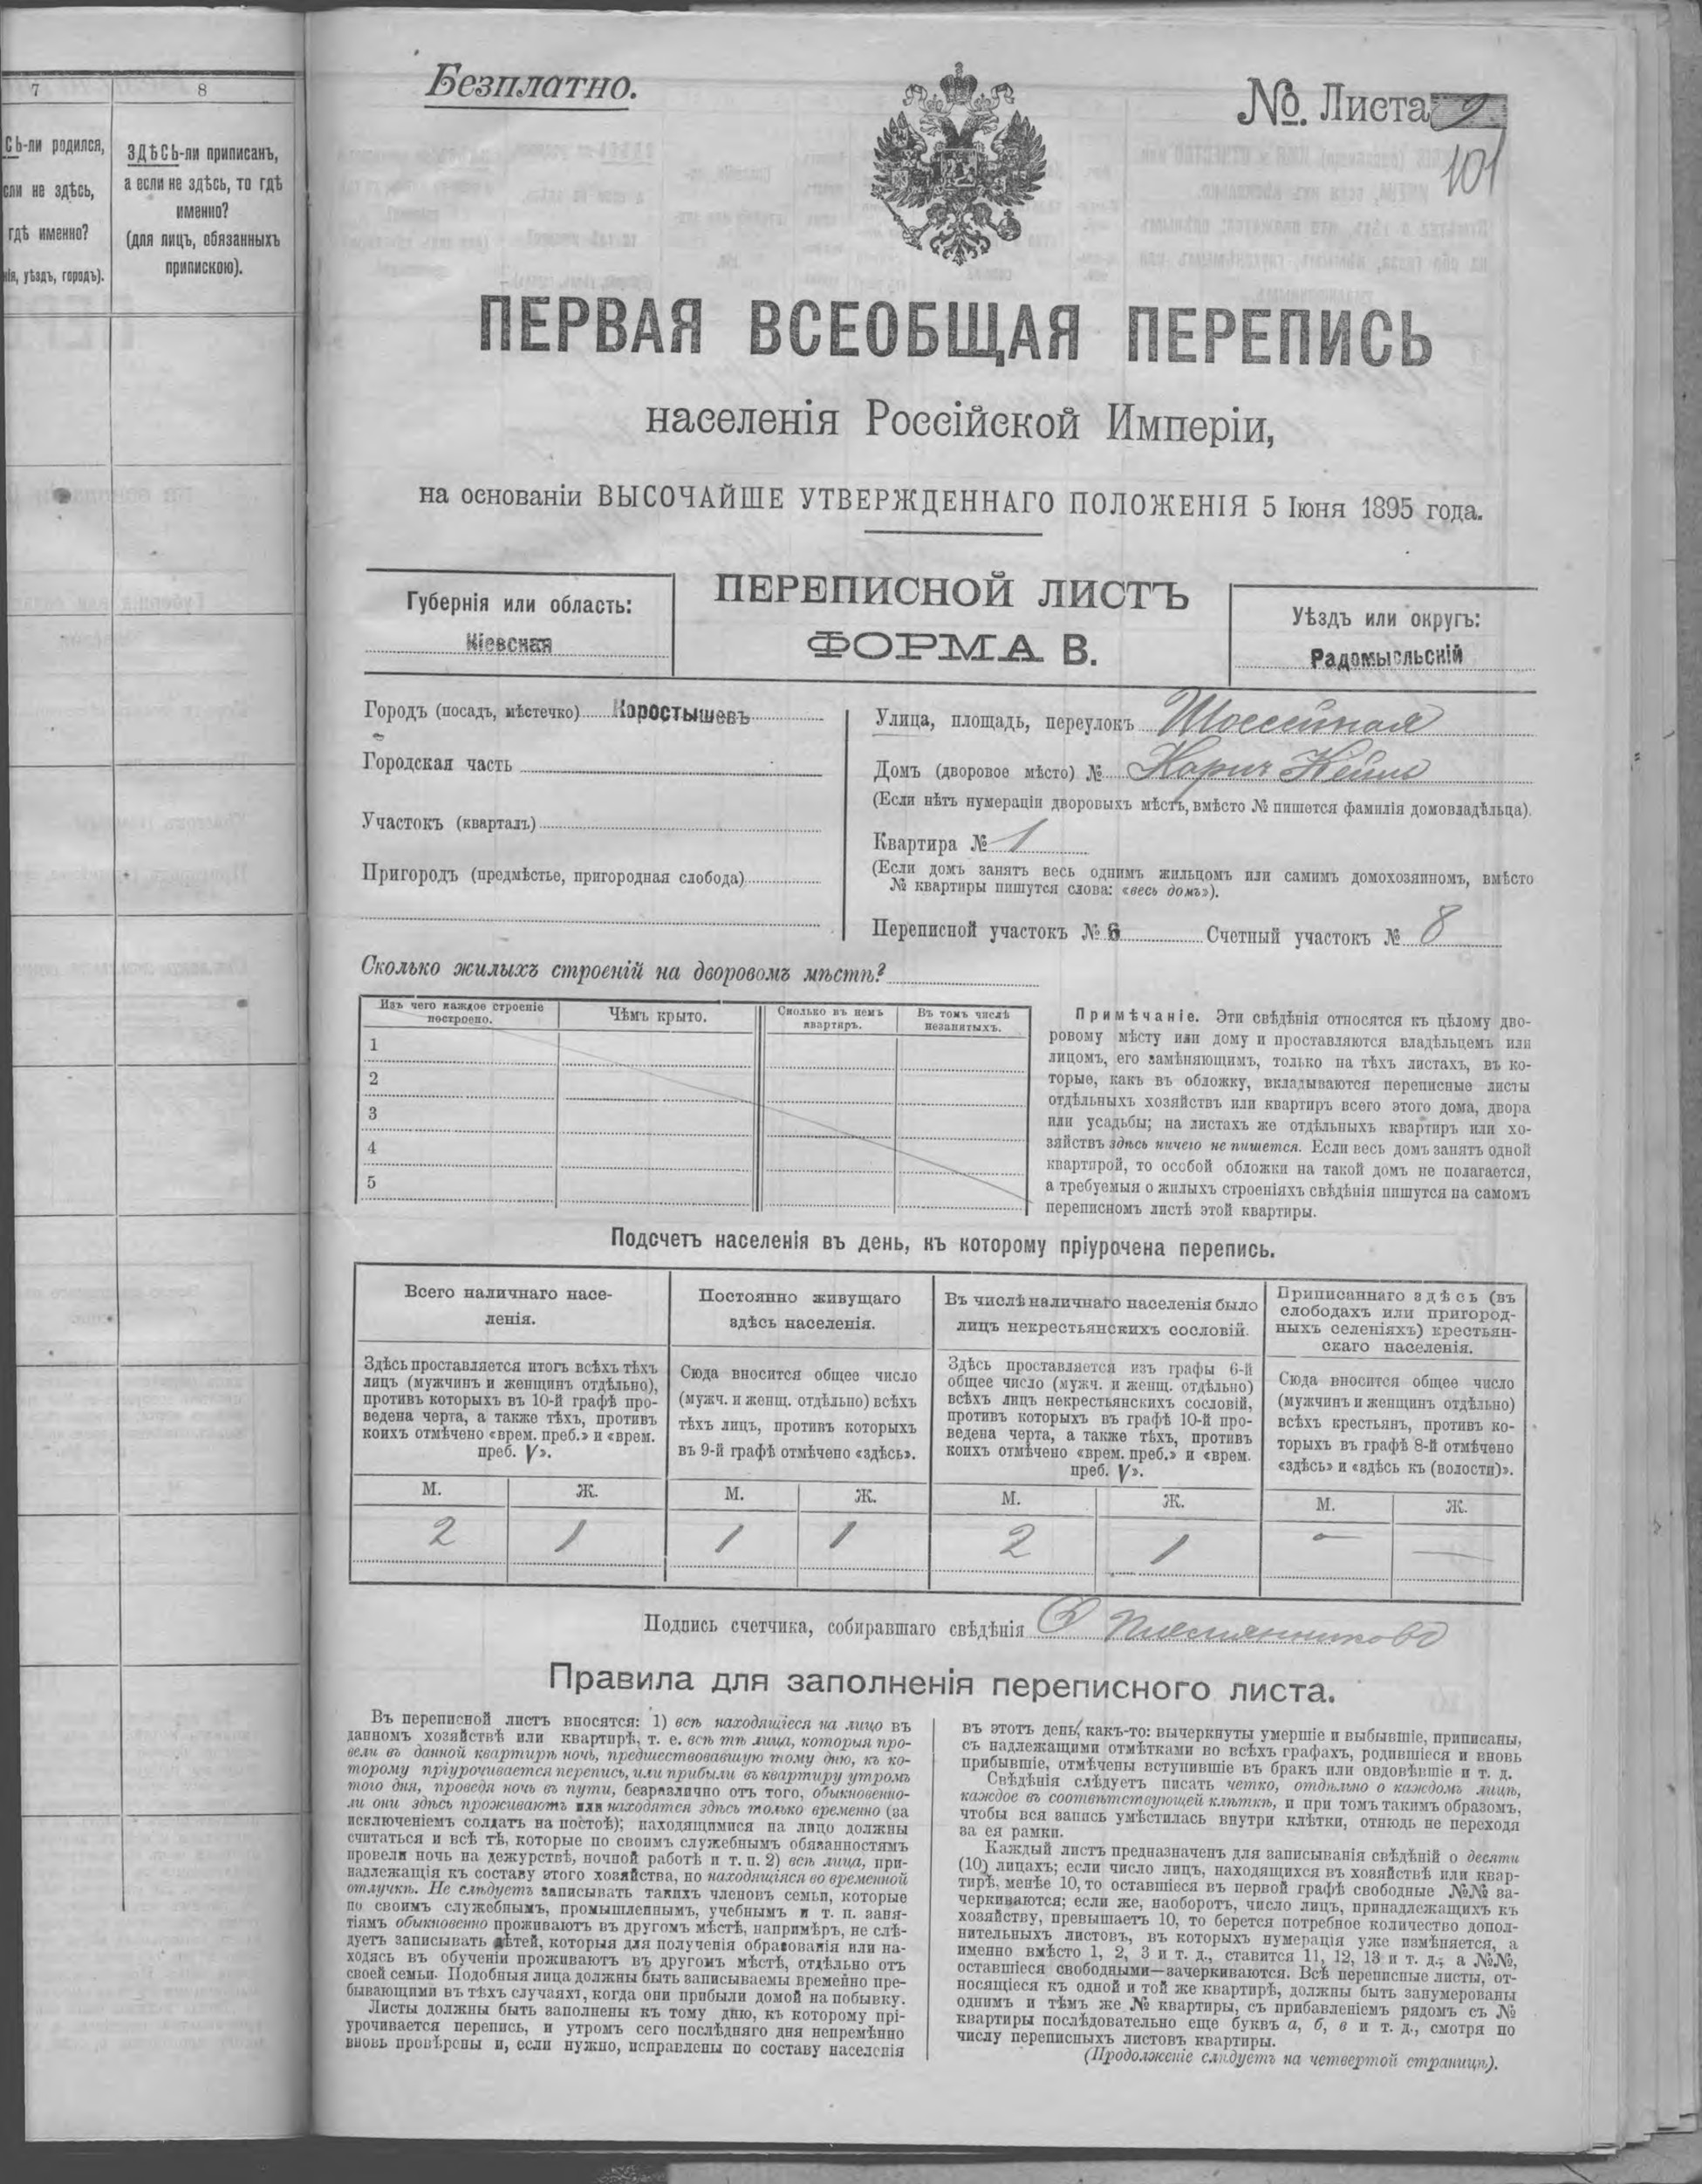 7
8
СЬ-ли родился,
сли не здѣсь,
гдѣ именно?
нія, уѣздъ, городъ).
ЗДѢСЬ-ли приписанъ,
а если не здѣсь, то гдѣ
именно?
(для лицъ, обязанныхъ
припискою).
Безплатно.
№. Листа 2
101
ПЕРВАЯ ВСЕОБЩАЯ ПЕРЕПИСЬ
населенія Россійской Имперіи,
на основаніи ВЫСОЧАЙШЕ УТВЕРЖДЕННАГО ПОЛОЖЕНІЯ 5 Іюня 1895 года.
Губернія или область:
Кіевская
ПЕРЕПИСНОЙ ЛИСТЪ
ФОРМА В.
Уѣздъ или округъ:
Радомысльскій
Городъ (посадъ, мѣстечко) Коростышевъ
Городская часть
Участокъ (кварталъ)
Пригородъ (предмѣстье, пригородная слобода)
Улица, площадь, переулокъ Шоссейная
Домъ (дворовое мѣсто) №
(Если нѣтъ нумераціи дворовыхъ мѣстъ, вмѣсто № пишется фамилія домовладѣльца).
Квартира № 1
(Если домъ занятъ весь однимъ жильцомъ или самимъ домохозяиномъ, вмѣсто
№ квартиры пишутся слова: «весь домъ»).
Переписной участокъ № 6 Счетный участокъ № 8
Сколько жилыхъ строеній на дворовомъ мѣстѣ?
Изъ чего каждое строеніе
построено.
Чѣмъ крыто.
Сколько въ немъ
квартиръ.
Въ томъ числѣ
незанятыхъ.
1
2
3
4
5
Примѣчаніе. Эти свѣдѣнія относятся къ цѣлому дво-
ровому мѣсту или дому и проставляются владѣльцемъ или
лицомъ, его замѣняющимъ, только на тѣхъ листахъ, въ ко-
торые, какъ въ обложку, вкладываются переписные листы
отдѣльныхъ хозяйствъ или квартиръ всего этого дома, двора
или усадьбы; на листахъ же отдѣльныхъ квартиръ или хо-
зяйствъ здѣсь ничего не пишется. Если весь домъ занятъ одной
квартирой, то особой обложки на такой домъ не полагается,
а требуемыя о жилыхъ строеніяхъ свѣдѣнія пишутся на самомъ
переписномъ листѣ этой квартиры.
Подсчетъ населенія въ день, къ которому пріурочена перепись.
Всего наличнаго насе-
ленія.
Постоянно живущаго
здѣсь населенія.
Въ числѣ наличнаго населенія было
лицъ некрестьянскихъ сословій.
Приписаннаго здѣсь (въ
слободахъ или пригород-
ныхъ селеніяхъ) крестьян-
скаго населенія.
Здѣсь проставляется итогъ всѣхъ тѣхъ
лицъ (мужчинъ и женщинъ отдѣльно),
противъ которыхъ въ 10-й графѣ про-
ведена черта, а также тѣхъ, противъ
коихъ отмѣчено «врем. преб.» и «врем.
преб. V».
Сюда вносится общее число
(мужч. и женщ. отдѣльно) всѣхъ
тѣхъ лицъ, противъ которыхъ
въ 9-й графѣ отмѣчено «здѣсь».
Здѣсь проставляется изъ графы 6-й
общее число (мужч. и женщ. отдѣльно)
всѣхъ лицъ некрестьянскихъ сословій,
противъ которыхъ въ графѣ 10-й про-
ведена черта, а также тѣхъ, противъ
коихъ отмѣчено «врем. преб.» и «врем.
преб. V».
Сюда вносится общее число
(мужчинъ и женщинъ отдѣльно)
всѣхъ крестьянъ, противъ ко-
торыхъ въ графѣ 8-й отмѣчено
«здѣсь» и «здѣсь къ (волости)».
М. Ж. М. Ж. М. Ж. М. Ж.
2 1 1 1 2 1 — —
Подпись счетчика, собиравшаго свѣдѣнія
Правила для заполненія переписного листа.
Въ переписной листъ вносятся: 1) всѣ находящіеся на лицо въ
данномъ хозяйствѣ или квартирѣ, т. е. всѣ тѣ лица, которыя про-
вели въ данной квартирѣ ночь, предшествовавшую тому дню, къ ко-
торому пріурочивается перепись, или прибыли въ квартиру утромъ
того дня, проведя ночь въ пути, безразлично отъ того, обыкновенно-
ли они здѣсь проживаютъ или находятся здѣсь только временно (за
исключеніемъ солдатъ на постоѣ); находящимися на лицо должны
считаться и всѣ тѣ, которые по своимъ служебнымъ обязанностямъ
провели ночь на дежурствѣ, ночной работѣ и т. п. 2) всѣ лица, при-
надлежащія къ составу этого хозяйства, но находящіяся во временной
отлучкѣ. Не слѣдуетъ записывать такихъ членовъ семьи, которые
по своимъ служебнымъ, промышленнымъ, учебнымъ и т. п. заня-
тіямъ обыкновенно проживаютъ въ другомъ мѣстѣ, напримѣръ, не слѣ-
дуетъ записывать дѣтей, которыя для полученія образованія или на-
ходясь въ обученіи проживаютъ въ другомъ мѣстѣ, отдѣльно отъ
своей семьи. Подобныя лица должны быть записываемы временно пре-
бывающими въ тѣхъ случаяхъ, когда они прибыли домой на побывку.
Листы должны быть заполнены къ тому дню, къ которому прі-
урочивается перепись, и утромъ сего послѣдняго дня непремѣнно
вновь провѣрены и, если нужно, исправлены по составу населенія
въ этотъ день, какъ-то: вычеркнуты умершіе и выбывшіе, приписаны,
съ надлежащими отмѣтками во всѣхъ графахъ, родившіеся и вновь
прибывшіе, отмѣчены вступившіе въ бракъ или овдовѣвшіе и т. д.
Свѣдѣнія слѣдуетъ писать четко, отдѣльно о каждомъ лицѣ,
каждое въ соотвѣтствующей клѣткѣ, и при томъ такимъ образомъ,
чтобы вся запись умѣстилась внутри клѣтки, отнюдь не переходя
за ея рамки.
Каждый листъ предназначенъ для записыванія свѣдѣній о десяти
(10) лицахъ; если число лицъ, находящихся въ хозяйствѣ или квар-
тирѣ, менѣе 10, то оставшіеся въ первой графѣ свободные №№ за-
черкиваются; если же, наоборотъ, число лицъ, принадлежащихъ къ
хозяйству, превышаетъ 10, то берется потребное количество допол-
нительныхъ листовъ, въ которыхъ нумерація уже измѣняется, а
именно вмѣсто 1, 2, 3 и т. д., ставится 11, 12, 13 и т. д.; а №№,
оставшіеся свободными—зачеркиваются. Всѣ переписные листы, от-
носящіеся къ одной и той же квартирѣ, должны быть занумерованы
однимъ и тѣмъ же № квартиры, съ прибавленіемъ рядомъ съ №
квартиры послѣдовательно еще буквъ а, б, в и т. д., смотря по
числу переписныхъ листовъ квартиры.
(Продолженіе слѣдуетъ на четвертой страницѣ).